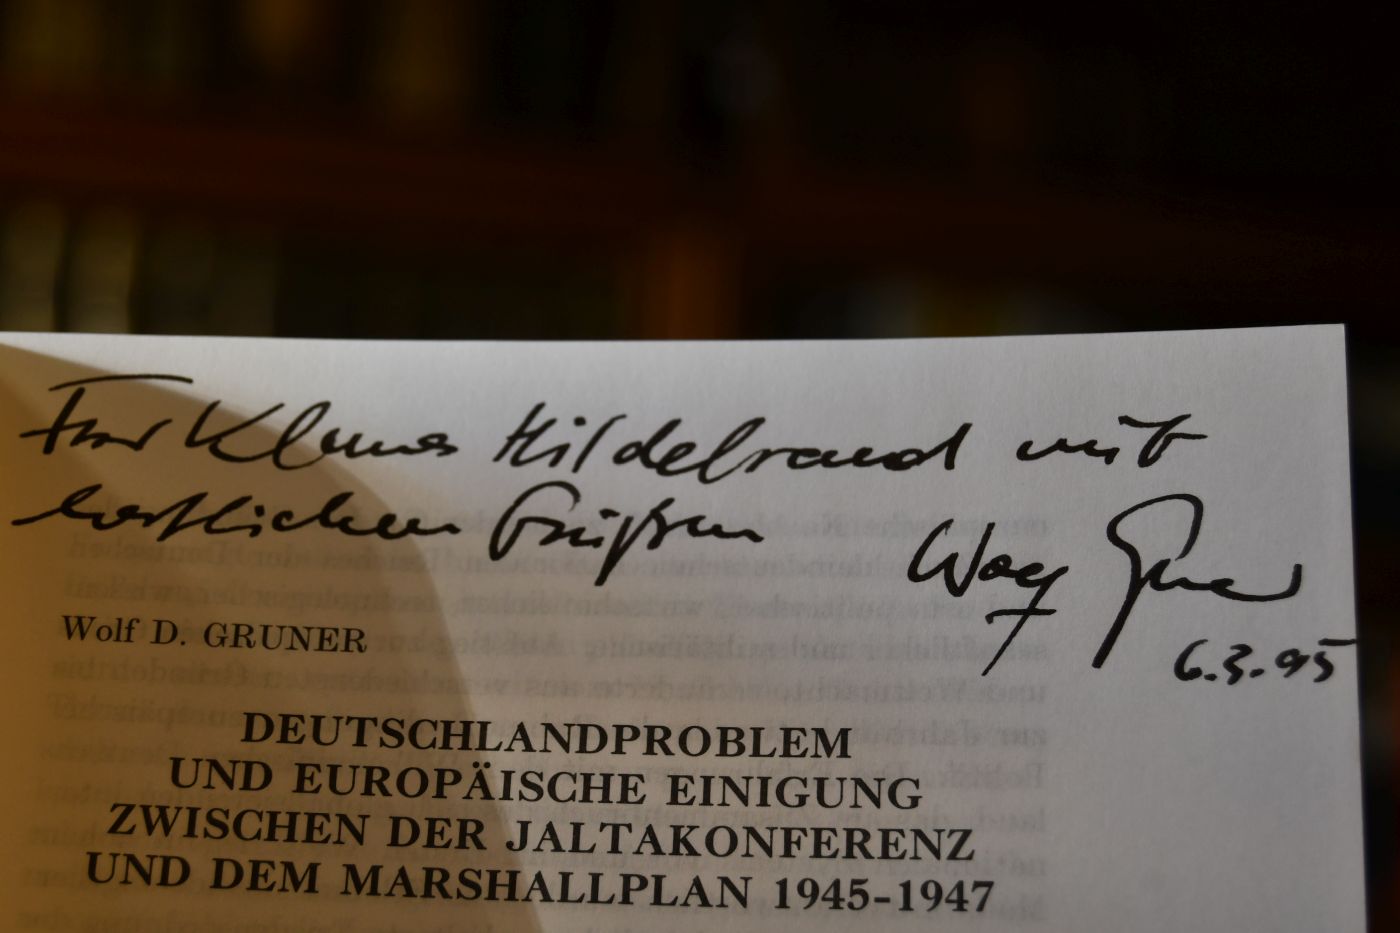 Für Klaus Hildebrand mit
herzlichen Grüßen Wolf Gruner
6.3.95
Wolf D. GRUNER
DEUTSCHLANDPROBLEM
UND EUROPÄISCHE EINIGUNG
ZWISCHEN DER JALTAKONFERENZ
UND DEM MARSHALLPLAN 1945-1947